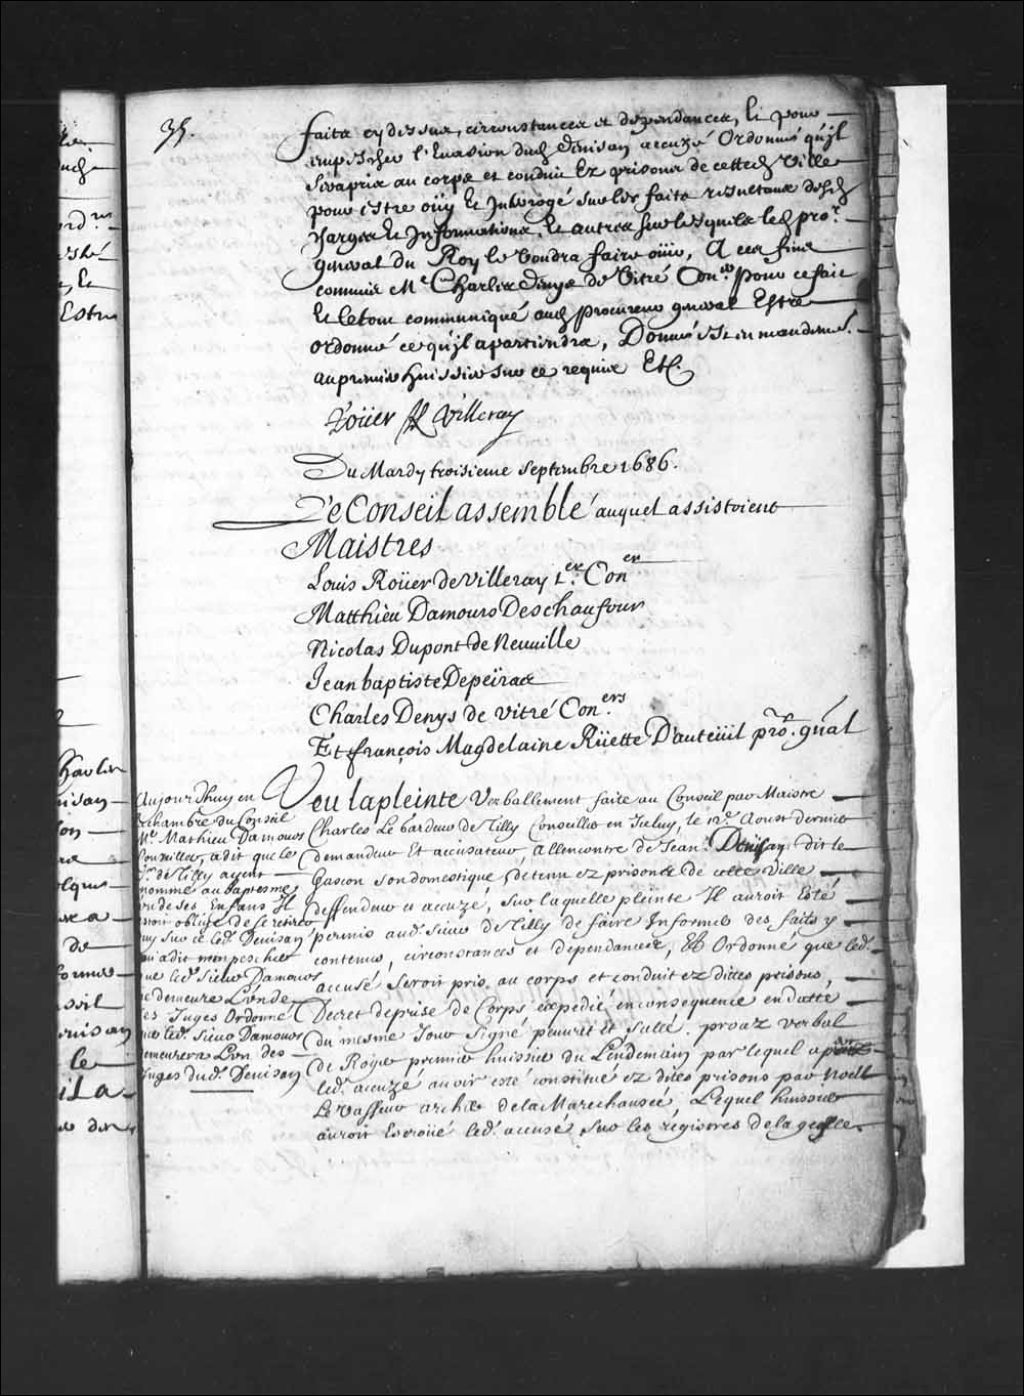 35.
faits cy dessus, circonstances et dependances, Et pour
empescher l'Evasion dud. Denisan accuzé Ordonné qu'jl
Sera pris au corps et conduit Ez prisons de cette ville
pour estre oüy Et Interrogé sur les faits resultans desd.
charges Et Informations, Et autres sur lesquels led. pror.
general du Roy le voudra faire oüir, A ces fins
commis Me. Charles Denys de Vitré Coner. pour ce fait
Et le tout communiqué aud. procureur general Estre
ordonné ce qu'jl apartiendra, Donné Et in mandemt.
au premier huissier sur ce requis Etc.
Roüer de Villeray
Du Mardy troisieme Septembre 1686.
Le Conseil assemblé auquel assistoient
Maistres
Louis Roüer de Villeray 1er. Coner
Matthieu Damours Deschaufour
Nicolas Dupont de Neuuille
Jean baptiste Depeiras
Charles Denys de Vitré Coners.
Et françois Magdelaine Rüette D'auteüil pror. gnal
Aujourdhuy en
la chambre du Conseil
Me. Mathieu Damours
Conseiller, a dit que le
Sr. de Tilly ayant
nommé au baptesme
un de ses Enfans Il
seroit obligé de se retirer
Sur ce led. Denisan
a dit n'empescher
que led. Sieur Damours
ne demeure L'un de
ses Juges Ordonné
que led. Sieur Damours
demeurera L'un des
Juges dud. Denisan
Veu la pleinte Verballement faite au Conseil par Maistre
Charles Le Gardeur de Tilly Conseiller en Iceluy, le 12e. Aoust dernier
demandeur Et accusateur, allencontre de Jean Denisan dit le
Gascon son domestique, detenu ez prisons de cette Ville
deffendeur et accuzé, Sur laquelle pleinte Il auroit Esté
permis aud. Sieur de Tilly de faire Informer des faits y
contenus, circonstances et dependances, Et Ordonné que led.
accusé Seroit pris au corps et conduit ez dittes prisons,
Decret de prise de Corps expedié en consequence en datte
du mesme Jour Signé peuuret Et Sellé. procez verbal
de Roger premier huissier du Lendemain par lequel apert
led. accuzé auoir esté constitué ez dites prisons par Noël
Levasseur archer de la Marechaussée, Lequel huissier
auroit Escroüé led. accusé Sur les registres de la geolle